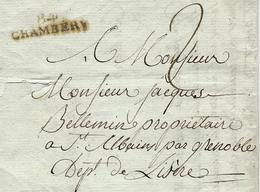 84
CHAMBÉRY
A Monsieur
2
Monsieur Jacques
Bellemin propriétaire
a St. Albain par grenoble
Dépt. de Lisère